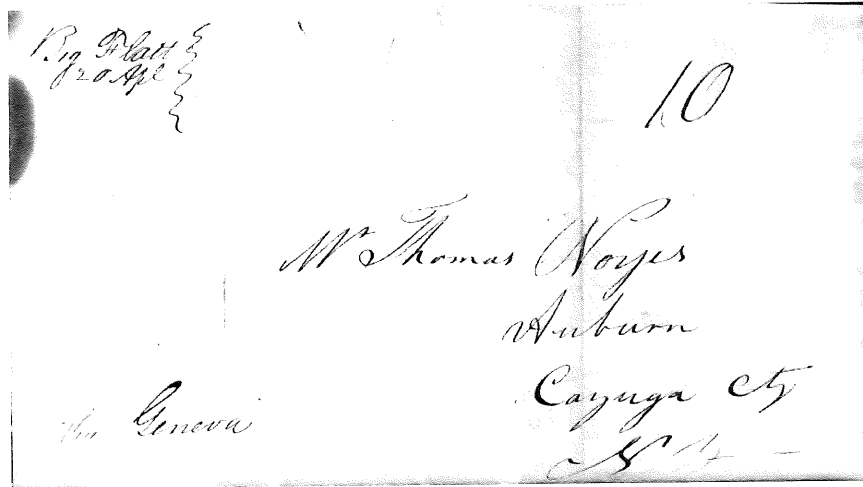 Big Flatt
20 Apl
10
Mr Thomas Noyes
Auburn
Cayuga Cty
N Y
Via Geneva